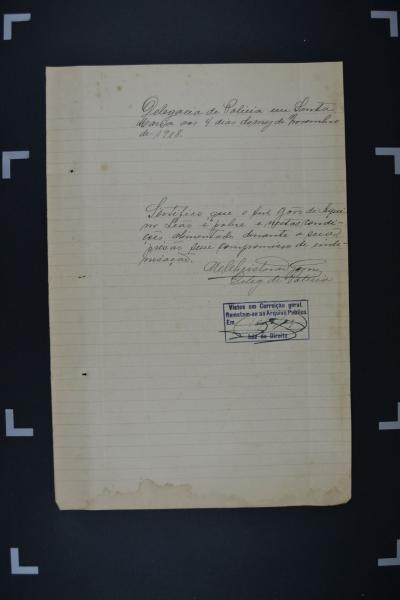 Delegacia de Policia em Santa
Maria aos 4 dias do mez de Novembro
de 1918.
Certifico que o
Leão é pobre e nestas condi-
ções alimentado durante a sua
prisão sem compromisso de inde-
nisação.
Deleg. de Policia
Vistos em Correição geral.
Remetam-se ao Arquivo Publico.
Em
Juiz de Direito